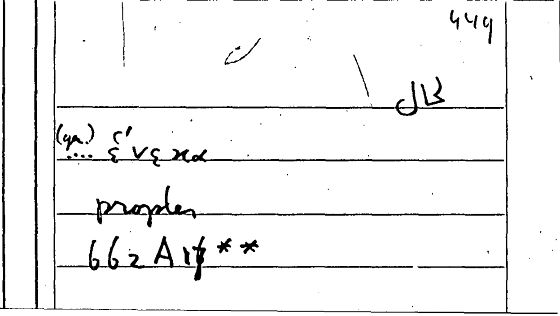 449
كال
(gr.) .... ἕνεκα
propter
662 A 17 **